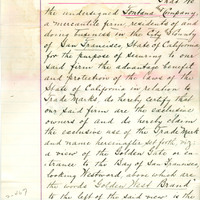 the undersigned Fontana & Company,
a mercantile firm, residents of and
doing business in the City & County
of San Francisco, State of California
for the purpose of securing to our
said firm the advantage benefit
and protection of the laws of the
State of California in relation to
Trade Marks, do hereby certify that
our said firm are the exclusive
owners of and do hereby claim
the exclusive use of the Trade Mark
and name hereinafter set forth, viz:
a view of the Golden Gate or en-
trance to the Bay of San Francisco
looking Westward, above which are
the words "Golden West Brand"
to the left of the said view is the